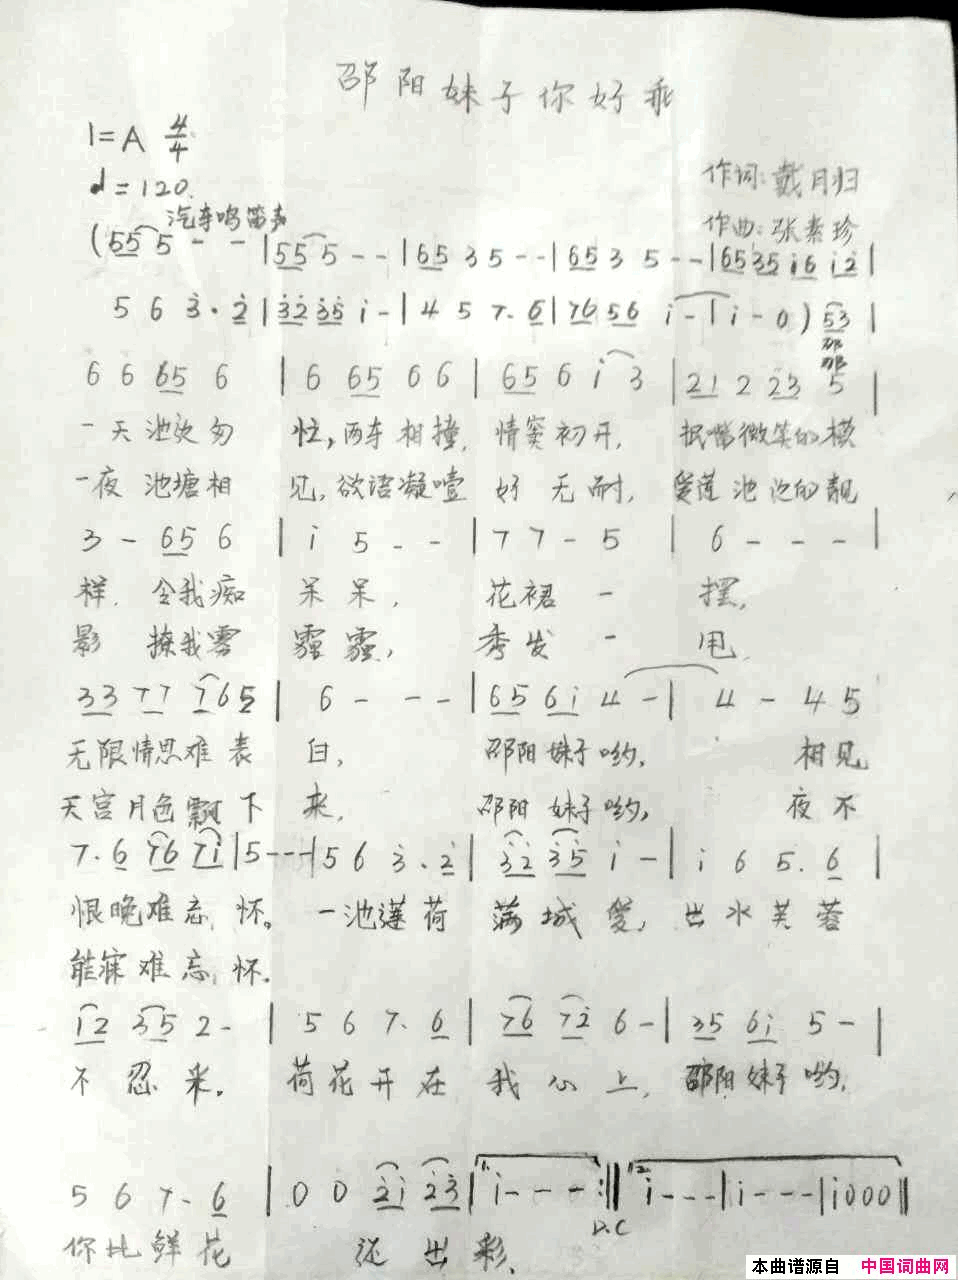 邵阳妹子你好乖
1=A 4/4
♩=120.
作词:戴月归
汽车鸣笛声
作曲:张素珍
(55 5 - - | 55 5 - - | 65 3 5 - - | 65 3 5 - - | 65 35 i6 i2 |
5 6 3·2 | 32 35 i - | 4 5 7·6 | 76 56 i - | i - 0 ) 53 |
那
那
6 6 65 6 | 6 65 6 6 | 65 6 i 3 | 21 2 23 5 |
一天池边匆 忙,两车相撞,情窦初开,抿嘴微笑的模
一夜池塘相 见,欲语凝噎 好无耐,爱莲池边的靓
3 - 65 6 | i 5 - - | 7 7 - 5 | 6 - - - |
样,令我痴 呆呆, 花裙 一 摆,
影 撩我雾 霾霾, 秀发 一 甩
33 77 765 | 6 - - - | 65 6i 4 - | 4 - 4 5
无限情思难表 白, 邵阳妹子哟, 相见
天宫月色飘下 来, 邵阳妹子哟, 夜不
7·6 76 7i | 5 - - - | 5 6 3·2 | 32 35 i - | i 6 5·6 |
恨晚难忘怀。 一池莲荷 满城爱, 出水芙蓉
能寐难忘怀.
i2 35 2 - | 5 6 7·6 | 76 72 6 - | 35 6i 5 - |
不忍采。 荷花开在 我心上, 邵阳妹子哟,
5 6 7·6 | 0 0 2i 23 | 1. i - - - :‖ 2. i - - - | i - - - | i 0 0 0 ‖
D.C
你比鲜花 还出彩。
本曲谱源自 中国词曲网